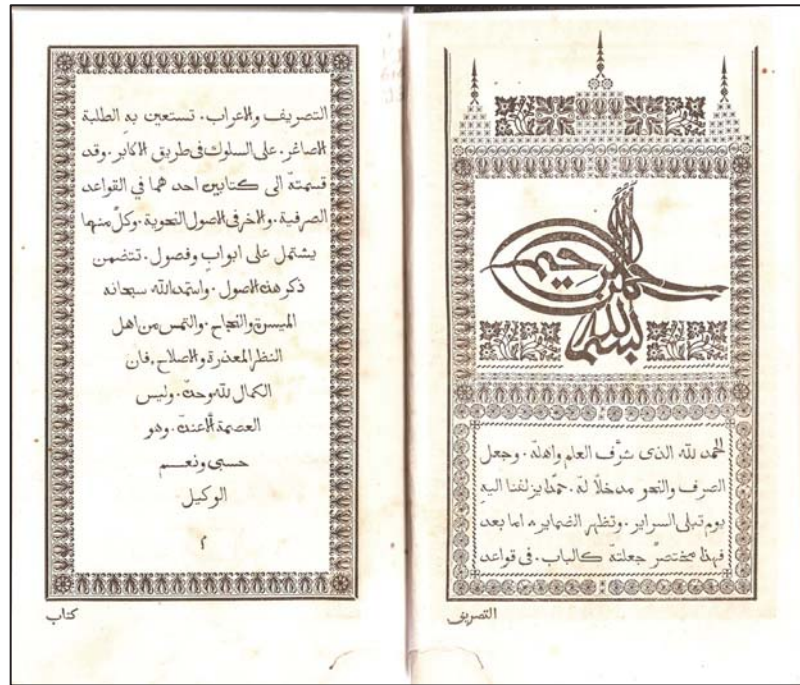 بسم الله الرحمن الرحيم
الحمد لله الذى شرّف العلم واهلهُ. وجعل
الصرف والنحو مدخلاً لهُ. حمدًا يزلفنا اليهِ
يوم تبلى السراير. وتظهر الضماير. اما بعد
فهذا مختصرٌ جعلتهُ كالباب. فى قواعد
التصريف
التصريف والاعراب. تستعين بهِ الطلبة
الاصاغر. على السلوك فى طريق الاكابر. وقد
قسمتهُ الى كتابين احدهما في القواعد
الصرفية. والاخر فى الاصول النحوية. وكلٌ منها
يشتمل على ابوابٍ وفصول. تتضمن
ذكر هذه الاصول. واستمد الله سبحانه
الميسرة والنجاح. والتمس من اهل
النظر المعذرة والاصلاح. فان
الكمال لله وحدهُ. وليس
العصمة الا عندهُ. وهو
حسبى ونعم
الوكيل
٢
كتاب